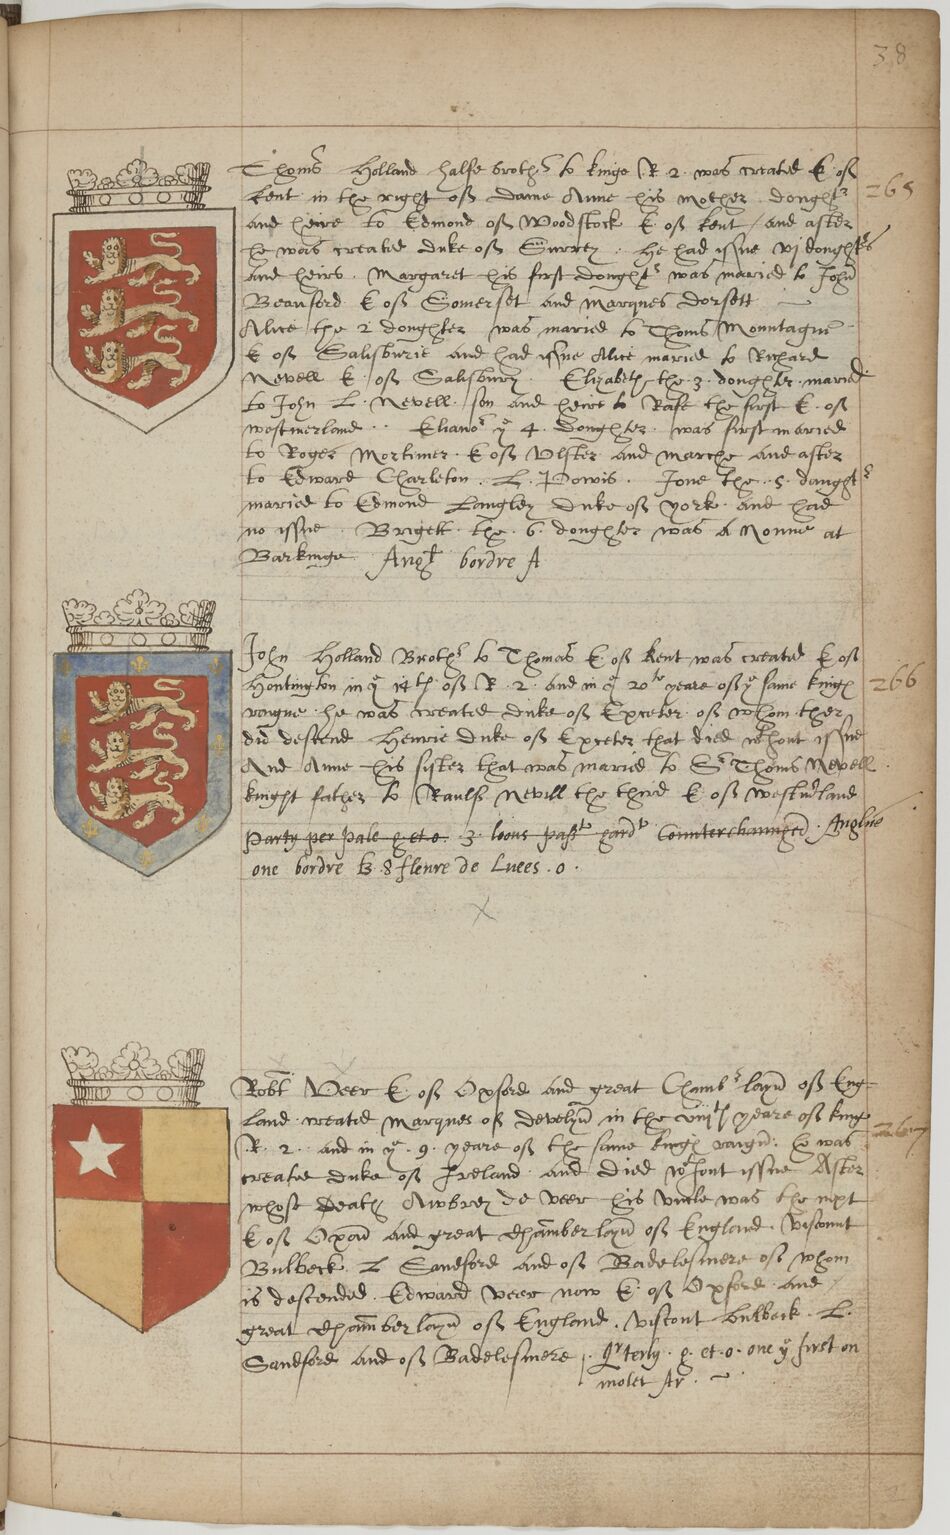 38
Thoms Holland halfe brothr to kinge R. 2. was created E. off
kent in the right off dame Anne his mother doughtr 265
and heire to Edmond off Woodstock E. off kent / and after
he was created duke off Surrey. He had issue vj doughters
and heirs. Margaret his first doughtr was maried to John
Beauford E. off Somerset and marques dorsett
Alice the 2 doughter was maried to Thoms Monntague
E. off Salisburie and had issue Alice maried to Richard
Nevell E. off Salisbury. Elizabeth the 3. doughter. maried
to John L. Nevell. son and heire to Rafe the first E. off
westmerland. Elianor ye 4. doughter. was first maried
to Roger Mortimer. E. off Ulster and marche and after
to Edward Charleton. L. Powis. Jone the 5. daughtr
maried to Edmond Langley duke off york. and had
no issue. Brigett the 6. doughter was a Nonne at
Barkinge. Angl bordre A
John Holland Brothr to Thomas E. off Kent was created E. off
Hontington in ye 14th off R. 2. and in ye 20te yeare off ye same kings 266
raigne he was created duke off Exceter off whom ther
did descend Henrie duke off Exceter that died without issue
And Anne his sister that was maried to Sr Thoms Nevell
knight father to Raulf Nevill the third E. off westmerland
Party per pale g et o. 3 lions past gard Counterchaunged. Anglue
one bordre B. 8 fleure de Luces. o.
Robt Veer E. off Oxford and great Chambrlayn off Eng-
land created marques off develyn in the viijth yeare off kinge
R. 2. and in ye. 9. yeare off the same kings raign. he was 267
created duke off Ireland and died without issue After
whose death Awbrey de veer his uncle was the next
E. off Oxon and great chamberlayn off England. Viscount
Bulbeck. L Sandford and off Badelesmere off whom
is descended. Edward veer now E. off Oxford and
great chamberlayn off England. Viscont bulbeck. L.
Sandford and off Badelesmere. Qrterly. g. et. o. one ye first on
molet Ar.